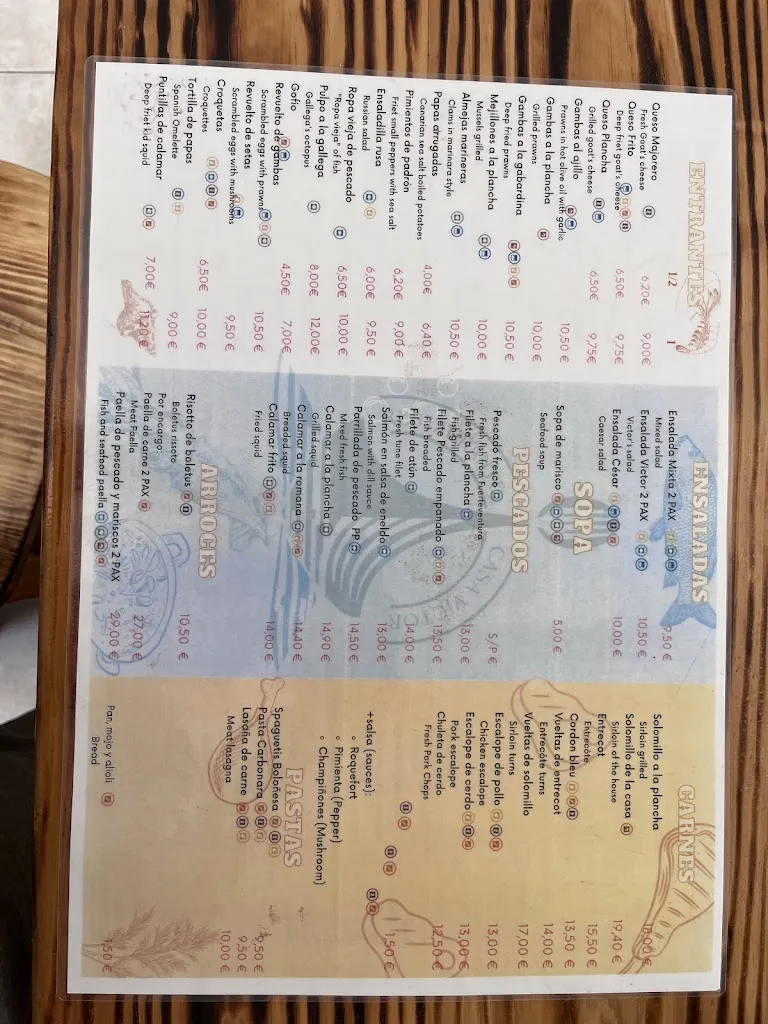 ENTRANTES
1/2 1
Queso Majorero 6,20€ 9,00€
Fresh Goat's cheese
Queso Frito 6,50€ 9,75€
Deep friet goat's cheese
Queso Plancha 6,50€ 9,75€
Grilled goat's cheese
Gambas al ajillo 10,50 €
Prawns in hot olive oil with garlic
Gambas a la plancha 10,00 €
Grilled prawns
Gambas a la gabardina 10,50 €
Deep fried prawns
Mejillones a la plancha 10,00 €
Mussels grilled
Almejas marineras 10,50 €
Clams in marinara style
Papas arrugadas 4,00€ 6,40 €
Canarian sea salt boiled potatoes
Pimientos de padrón 6,20€ 9,00 €
Friet small peppers with sea salt
Ensaladilla rusa 6,00€ 9,50 €
Russian salad
Ropa vieja de pescado 6,50€ 10,00 €
"Ropa vieja" of fish
Pulpo a la gallega 8,00€ 12,00€
Gallega's octopus
Gofio 4,50€ 7,00€
Revuelto de gambas 10,50 €
Scrambled eggs with prawns
Revuelto de setas 9,50 €
Scrambled eggs with mushrooms
Croquetas 6,50€ 10,00 €
Croquettes
Tortilla de papas 9,00 €
Spanish Omelette
Puntillas de calamar 7,00€ 11,20 €
Deep friet kid squid
ENSALADAS
Ensalada Mixta 2 PAX 9,50 €
Mixed salad
Ensalada Victor 2 PAX 10,50 €
Victor's salad
Ensalada César 10,00 €
Caesar salad
SOPA
Sopa de marisco 5,00 €
Seafood soup
PESCADOS
Pescado fresco S/P €
Fresh fish from Fuerteventura
Filete a la plancha 13,00 €
Fish grilled
Filete Pescado empanado 13,50 €
Fish breaded
Filete de atún 14,00 €
Fresh tune fillet
Salmón en salsa de eneldo 13,00 €
Salmon with dill sauce
Parrillada de pescado PP 14,50 €
Mixed fresh fish
Calamar a la plancha 14,90 €
Grilled squid
Calamar a la romana 14,40 €
Breaded squid
Calamar frito 14,00 €
Fried squid
CASA VICTOR
ARROCES
Risotto de boletus 10,50 €
Boletus rissoto
Por encargo:
Paella de carne 2 PAX 27,00 €
Meat Paella
Paella de pescado y mariscos 2 PAX 29,00 €
Fish and seafood paella
CARNES
Solomillo a la plancha 18,00 €
Sirloin grilled
Solomillo de la casa 19,40 €
Sirloin of the house
Entrecot 15,50 €
Entrecôte
Cordon bleu 13,50 €
Vueltas de entrecot 14,00 €
Entrecôte turns
Vueltas de solomillo 17,00 €
Sirloin turns
Escalope de pollo 13,00 €
Chicken escalope
Escalope de cerdo 13,00 €
Pork escalope
Chuleta de cerdo 12,50 €
Fresh Pork Chops
+salsa (sauces): 1,50 €
Roquefort
Pimienta (Pepper)
Champiñones (Mushroom)
PASTAS
Spaguetis Boloñesa 9,50 €
Pasta Carbonara 9,50 €
Lasaña de carne 10,00 €
Meat lasagna
Pan, mojo y alioli 1,50 €
Bread